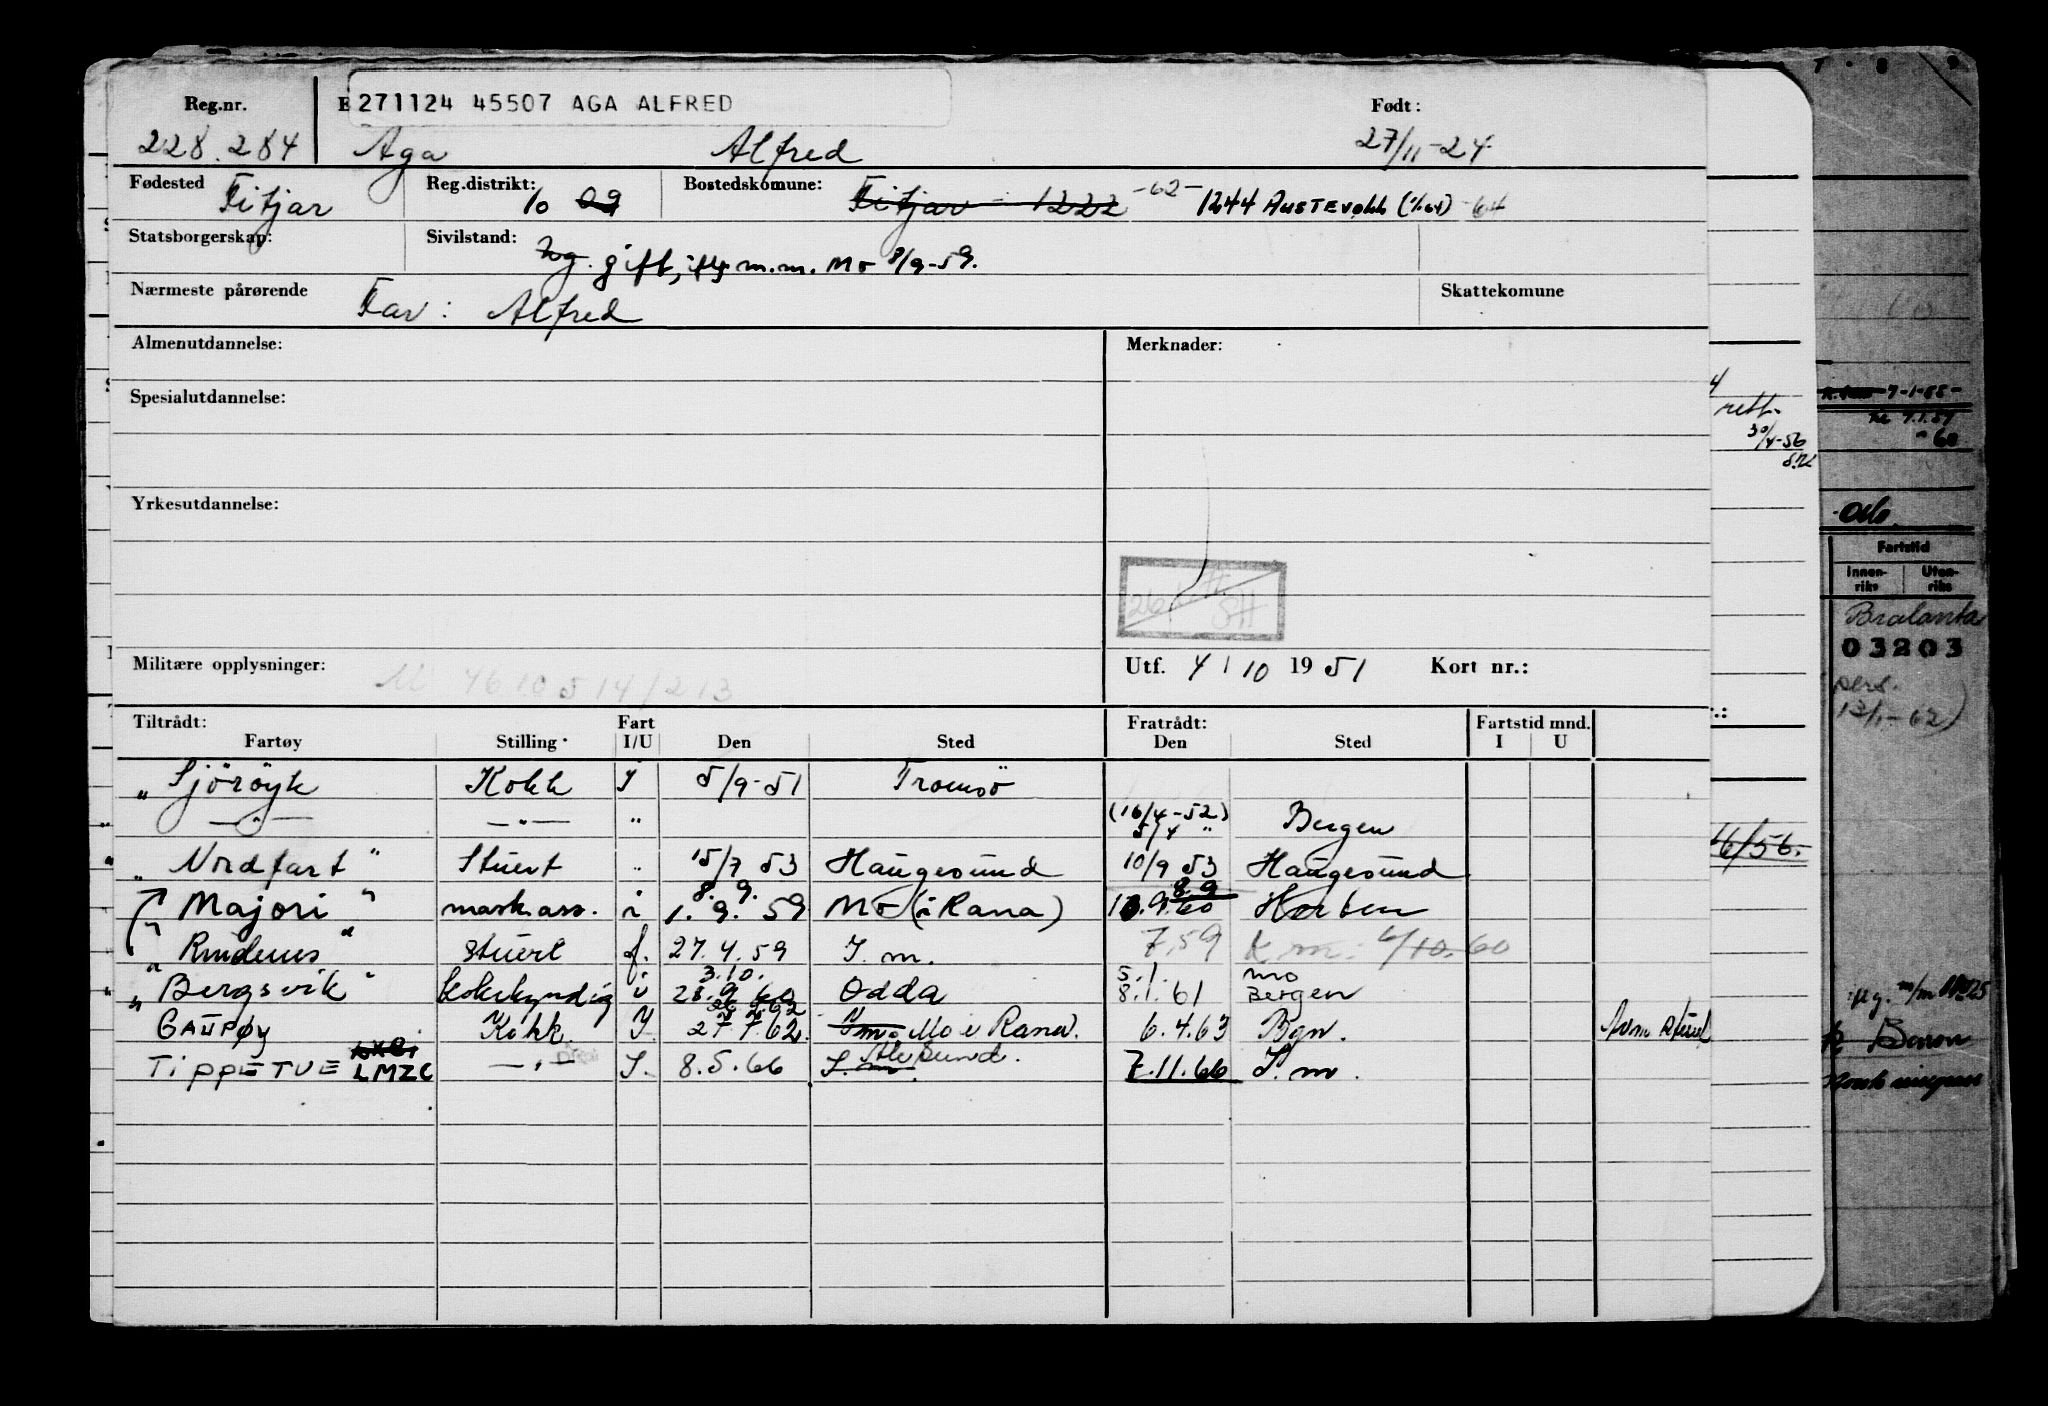 Reg.nr. E 271124 45507 AGA ALFRED Født:
228.284 Aga Alfred 27/11-24
Fødested Fitjar Reg.distrikt: 10 09 Bostedskomune: Fitjar - 1222 -62- 1244 AUSTEVOLL (1/64) -64
Statsborgerskap: Sivilstand: Ug. gift, iflg m.m. Mo 8/9-59.
Nærmeste pårørende Far: Alfred Skattekomune
Almenutdannelse: Merknader:
Spesialutdannelse:
Yrkesutdannelse:
Militære opplysninger: M 4610514/213 Utf. 4/10 1951 Kort nr.:
Tiltrådt: Fart Fratrådt: Fartstid mnd.
Fartøy Stilling I/U Den Sted Den Sted I U
" Sjöröyk Kokk I 5/9-51 Tromsö
" —"— —"— " (16/4-52) 5/4 " Bergen
" Nordfart " Stuert " 15/7 53 Haugesund 10/9 53 Haugesund
" Majori " mask.ass. i 8.9. 1.9.59 Mo (i Rana) 8.9 Horten
" Rundenes " stuert f. 27.4.59 I.m. 7.59 6/10.60
" Bergsvik " kokekyndig i 3.10. 28.9.60 Odda 5.1. 8.1.61 Mo Bergen
" GAUPØY Kokk I 27.7.62 Mo i Rana. 6.4.63 Bgn.
TIPPETUE LMZC —"— I. 8.5.66 I.m. Ålesund. 7.11.66 I.m.
rett.
30/4-56
6/56.
7-1-55-
7.1.57
" 60
Oslo
Fartstid
Innen-riks Uten-riks
Bralanta
03203
13/1-62)
Baron